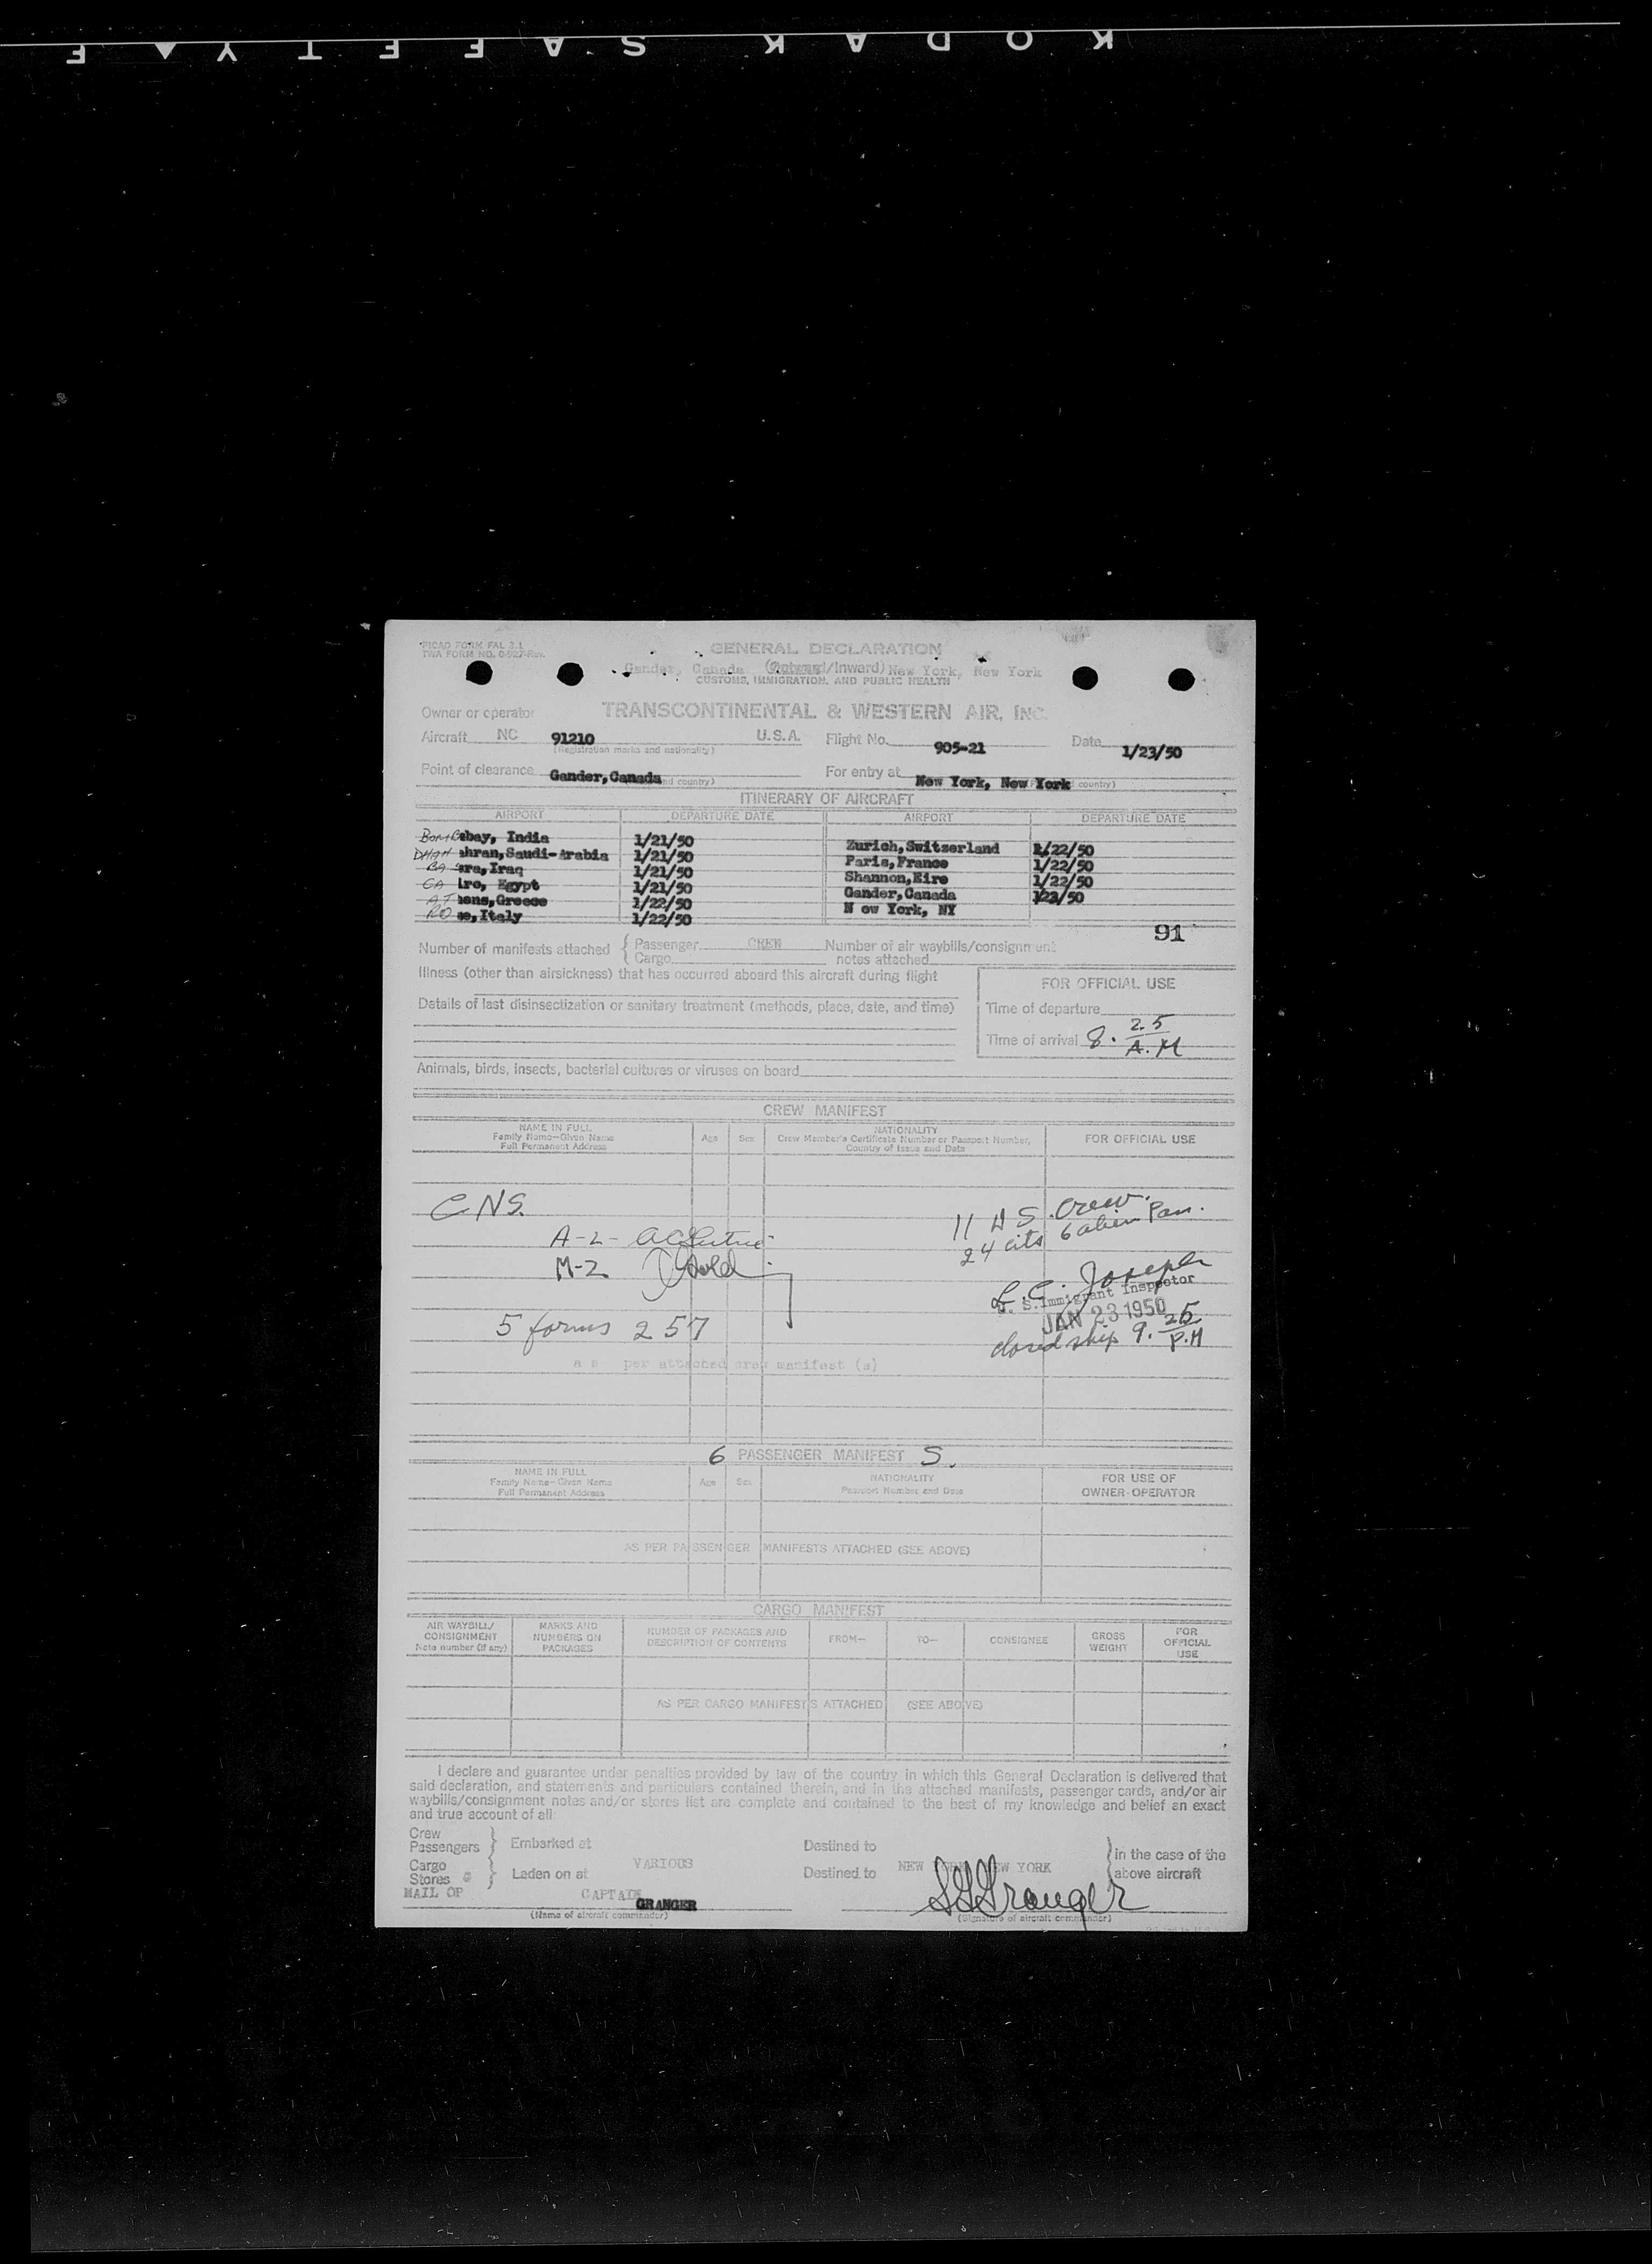 KODAK SAFETY F
PICAO FORM FAL 2.1
TWA FORM NO. O-927-Rev.
GENERAL DECLARATION
Gander, Canada (Outward/Inward) New York, New York
CUSTOMS, IMMIGRATION, AND PUBLIC HEALTH
Owner or operator TRANSCONTINENTAL & WESTERN AIR, INC.
Aircraft NC 91210 U.S.A. Flight No. 905-21 Date 1/23/50
(Registration marks and nationality)
Point of clearance Gander, Canada nd country) For entry at New York, New York country)
ITINERARY OF AIRCRAFT
AIRPORT DEPARTURE DATE AIRPORT DEPARTURE DATE
Bombay, India 1/21/50 Zurich, Switzerland 1/22/50
Dhahran, Saudi-Arabia 1/21/50 Paris, France 1/22/50
Basra, Iraq 1/21/50 Shannon, Eire 1/22/50
Cairo, Egypt 1/21/50 Gander, Canada 123/50
Athens, Greece 1/22/50 N ew York, NY
Rome, Italy 1/22/50
91
Number of manifests attached { Passenger CREW Number of air waybills/consignment
Cargo notes attached
Illness (other than airsickness) that has occurred aboard this aircraft during flight
FOR OFFICIAL USE
Details of last disinsectization or sanitary treatment (methods, place, date, and time)
Time of departure
Time of arrival 8.25 A.M
Animals, birds, insects, bacterial cultures or viruses on board
CREW MANIFEST
NAME IN FULL
Family Name—Given Name
Full Permanent Address
Age Sex
NATIONALITY
Crew Member's Certificate Number or Passport Number,
Country of Issue and Date
FOR OFFICIAL USE
CNS.
11 US. Crew.
24 cits 6 alien Pass.
A-2-
M-2
L.C. Joseph
U. S. Immigrant Inspector
JAN 23 1950
5 forms 257
closed ship 9.25 P.M
a s per attached crew manifest (s)
6 PASSENGER MANIFEST S.
NAME IN FULL
Family Name—Given Name
Full Permanent Address
Age Sex
NATIONALITY
Passport Number and Date
FOR USE OF
OWNER-OPERATOR
AS PER PASSENGER MANIFESTS ATTACHED (SEE ABOVE)
CARGO MANIFEST
AIR WAYBILL/
CONSIGNMENT
Note number (if any)
MARKS AND
NUMBERS ON
PACKAGES
NUMBER OF PACKAGES AND
DESCRIPTION OF CONTENTS
FROM— TO— CONSIGNEE
GROSS
WEIGHT
FOR
OFFICIAL
USE
AS PER CARGO MANIFESTS ATTACHED (SEE ABOVE)
I declare and guarantee under penalties provided by law of the country in which this General Declaration is delivered that
said declaration, and statements and particulars contained therein, and in the attached manifests, passenger cards, and/or air
waybills/consignment notes and/or stores list are complete and contained to the best of my knowledge and belief an exact
and true account of all:
Crew
Passengers } Embarked at Destined to in the case of the
Cargo
Stores } Laden on at VARIOUS Destined to NEW YORK NEW YORK above aircraft
MAIL OF CAPTAIN GRANGER Granger
(Name of aircraft commander) (Signature of aircraft commander)